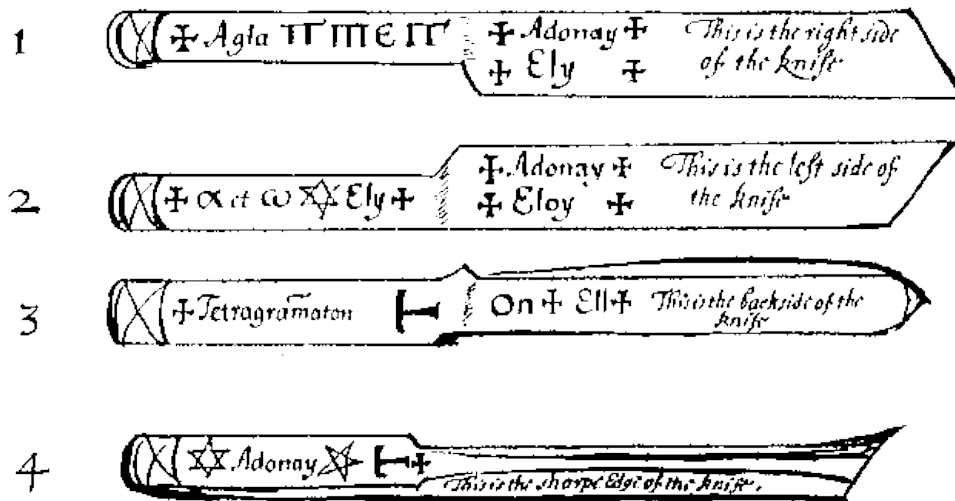 1
✠ Agla
✠ Adonay
✠ Ely ✠
This is the right side
of the knife
2
✠ α et ω ✡ Ely ✠
✠ Adonay ✠
✠ Eloy ✠
This is the left side of
the knife
3
✠ Tetragram̄aton
On ✠ Ell ✠
This is the backside of the
knife
4
✡ Adonay ⛤ ✠
This is the sharpe Edge of the knife.